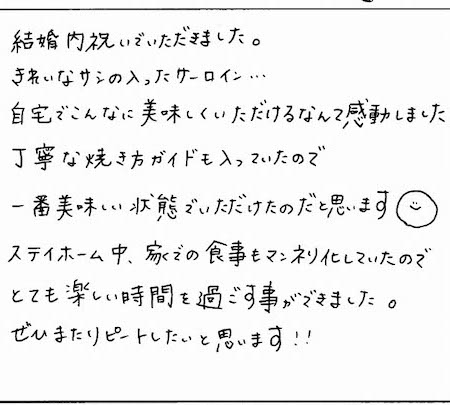 結婚内祝いでいただきました。
きれいなサシの入ったサーロイン…
自宅でこんなに美味しくいただけるなんて感動しました
丁寧な焼き方ガイドも入っていたので
一番美味しい状態でいただけたのだと思います
ステイホーム中、家での食事もマンネリ化していたので
とても楽しい時間を過ごす事ができました。
ぜひまたリピートしたいと思います!!